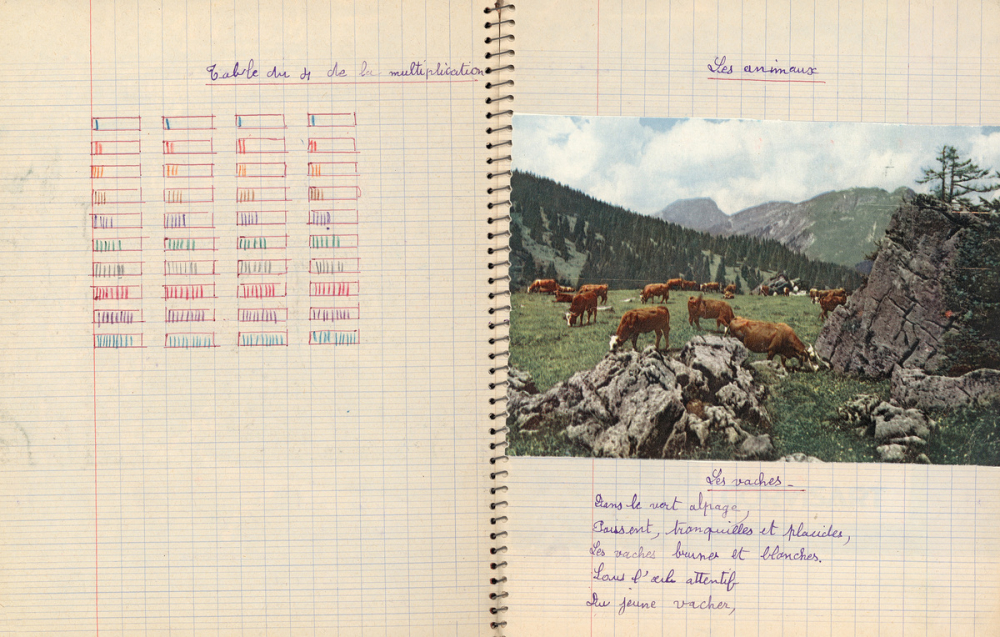 Table du 4 de la multiplication
Les animaux
Les vaches -
Dans le vert alpage,
Paissent, tranquilles et placides,
Les vaches brunes et blanches.
Sous l'œil attentif
Du jeune vacher,